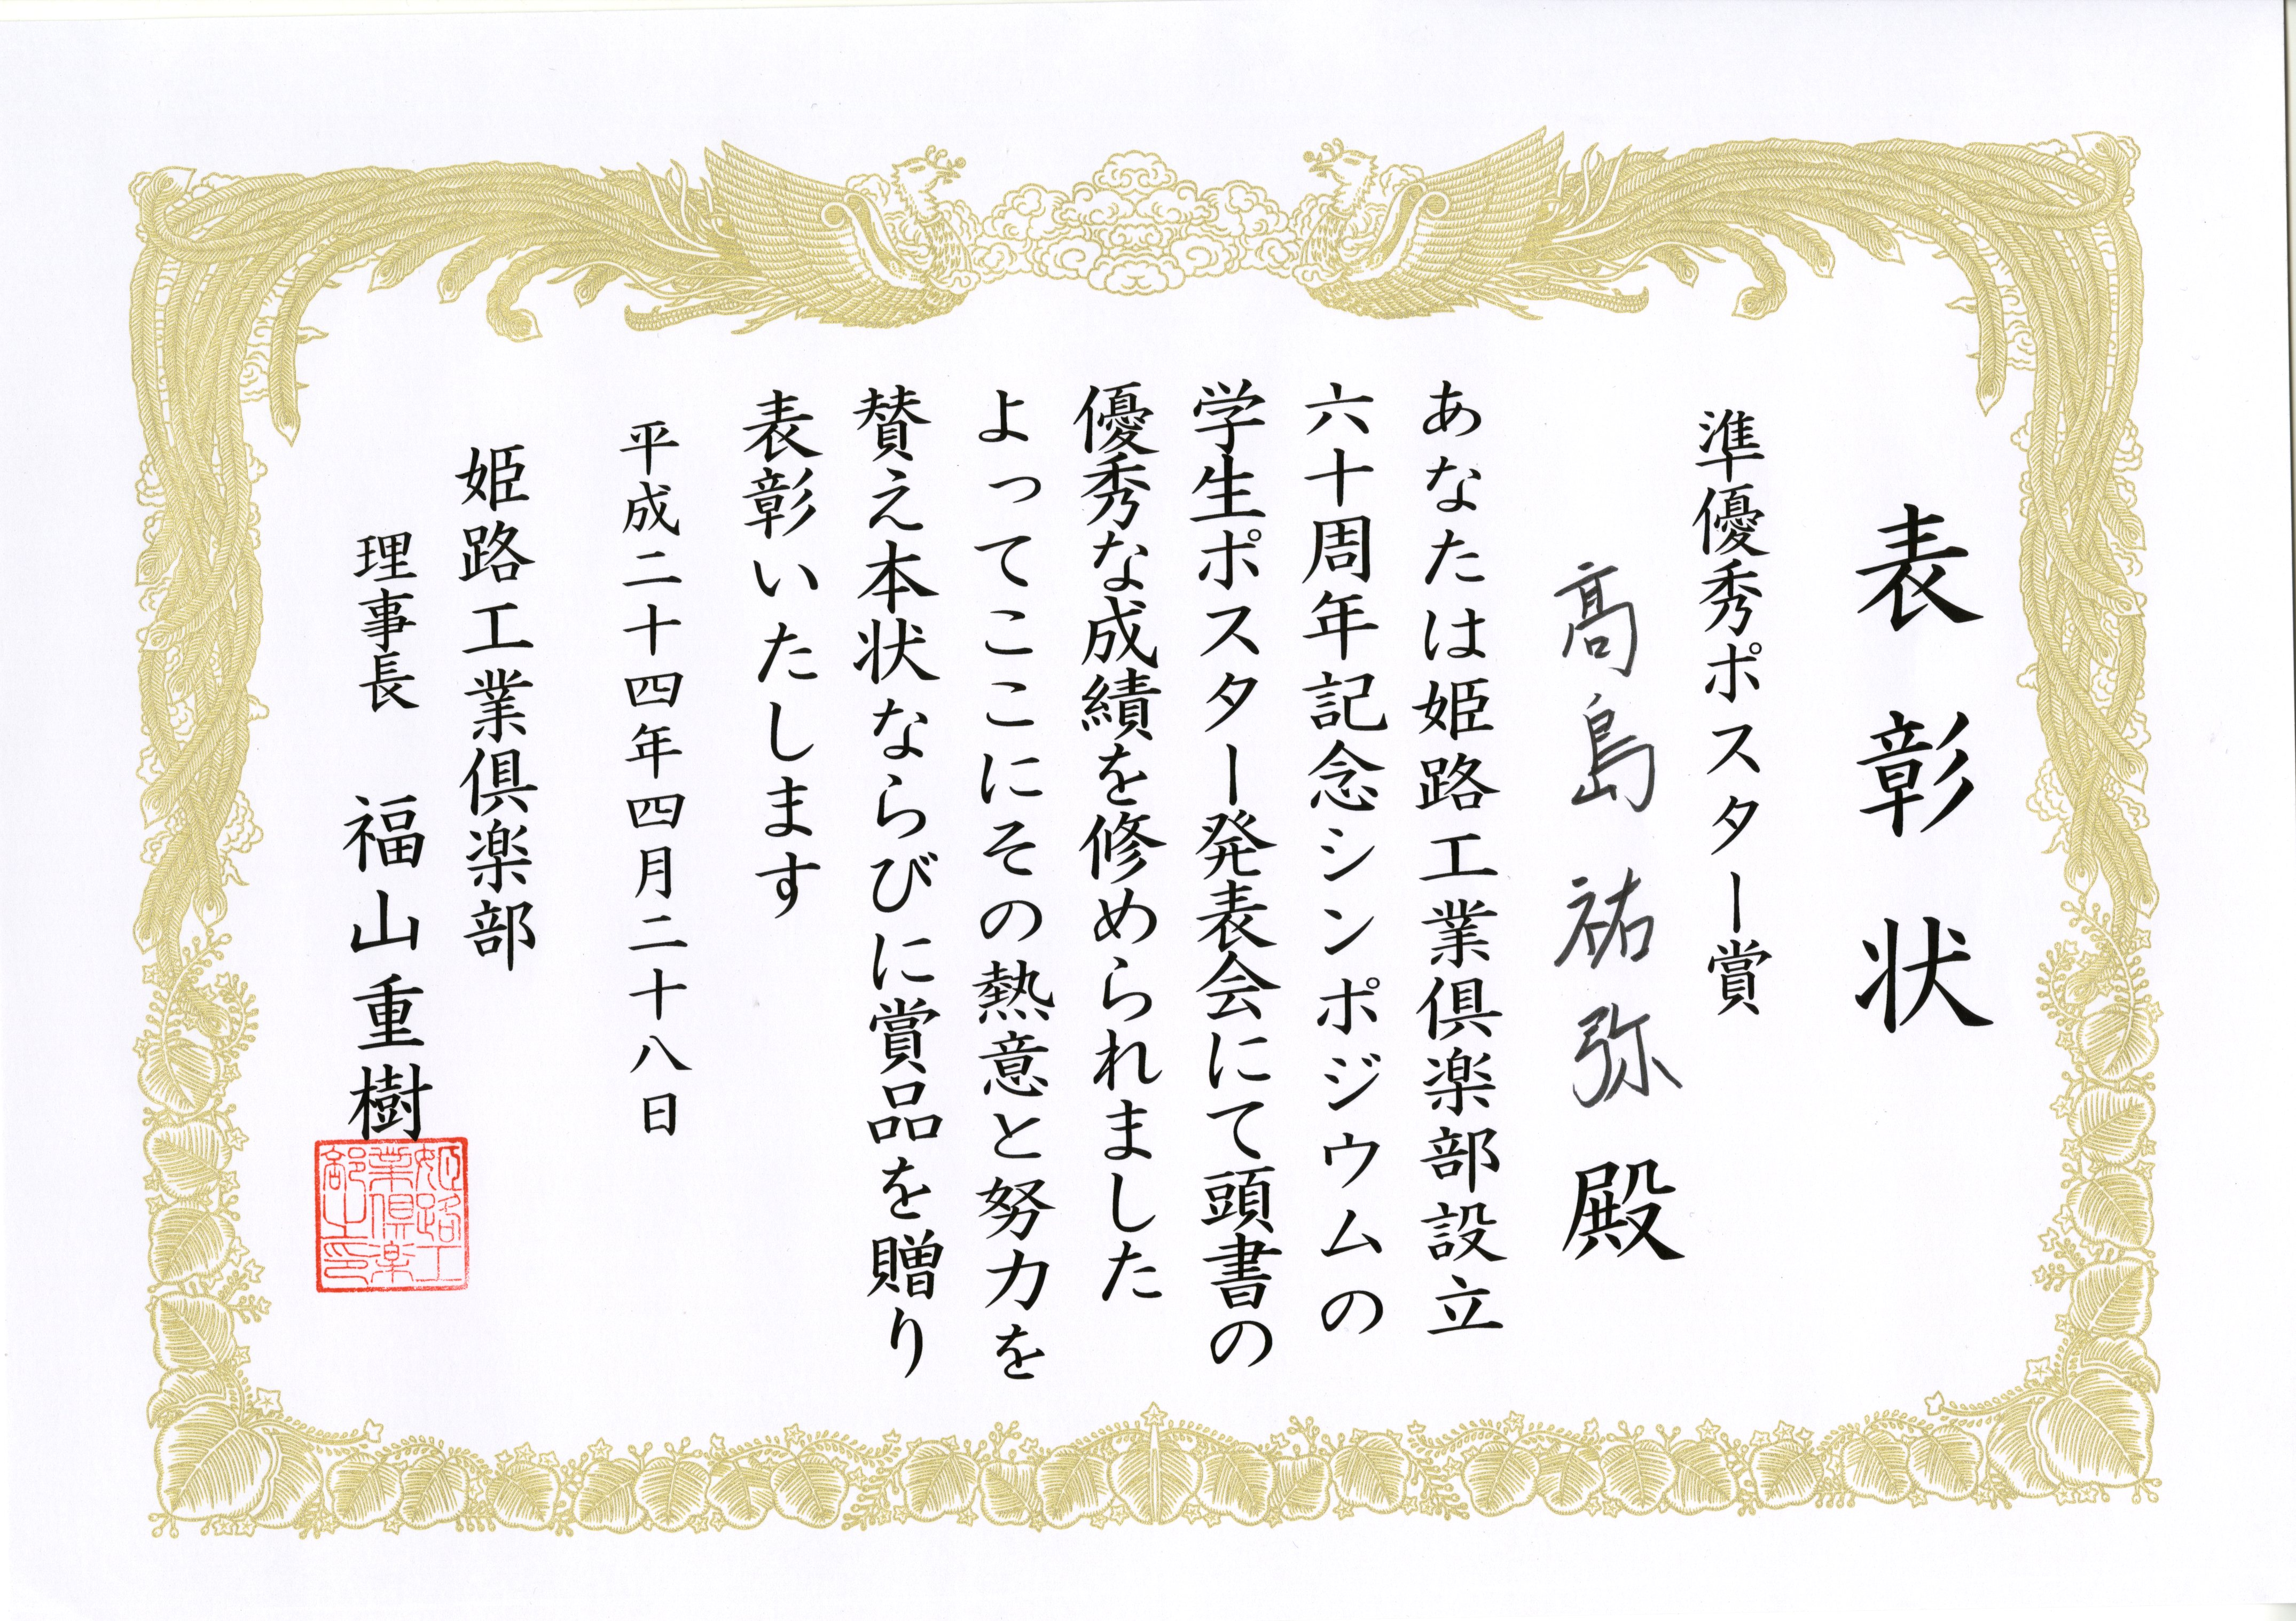 表彰状
準優秀ポスター賞
髙島祐弥 殿
あなたは姫路工業倶楽部設立
六十周年記念シンポジウムの
学生ポスター発表会にて頭書の
優秀な成績を修められました
よってここにその熱意と努力を
賛え本状ならびに賞品を贈り
表彰いたします
平成二十四年四月二十八日
姫路工業倶楽部
理事長 福山重樹
姫路工
業倶楽
部之印